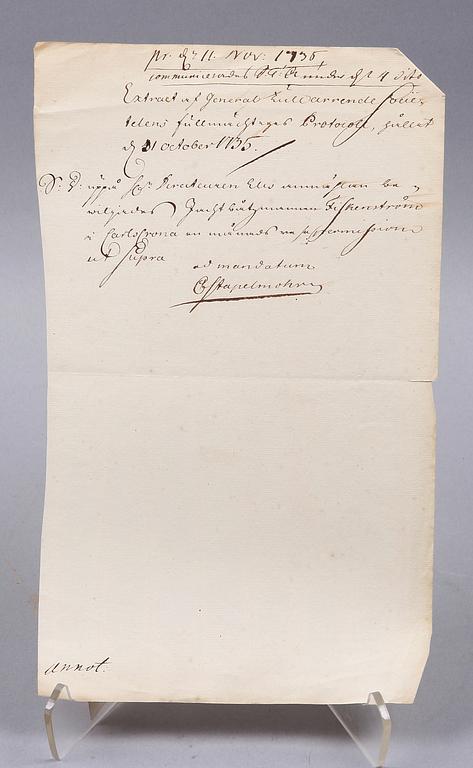 pr. d. 11. Nov: 1735
communicerades S. T. under d. 4 dito
Extract af General Tull Arrende Socie-
tetens fullmächtiges Protocoll, hållit
d. 31 October 1735.
S: D: uppå H:r Directeuren anmälan be-
wilgades Jacht båtzmannen Fiskenström
i Carlscrona en månads permission
ut supra
ad mandatum
CStapelmohr
annot.